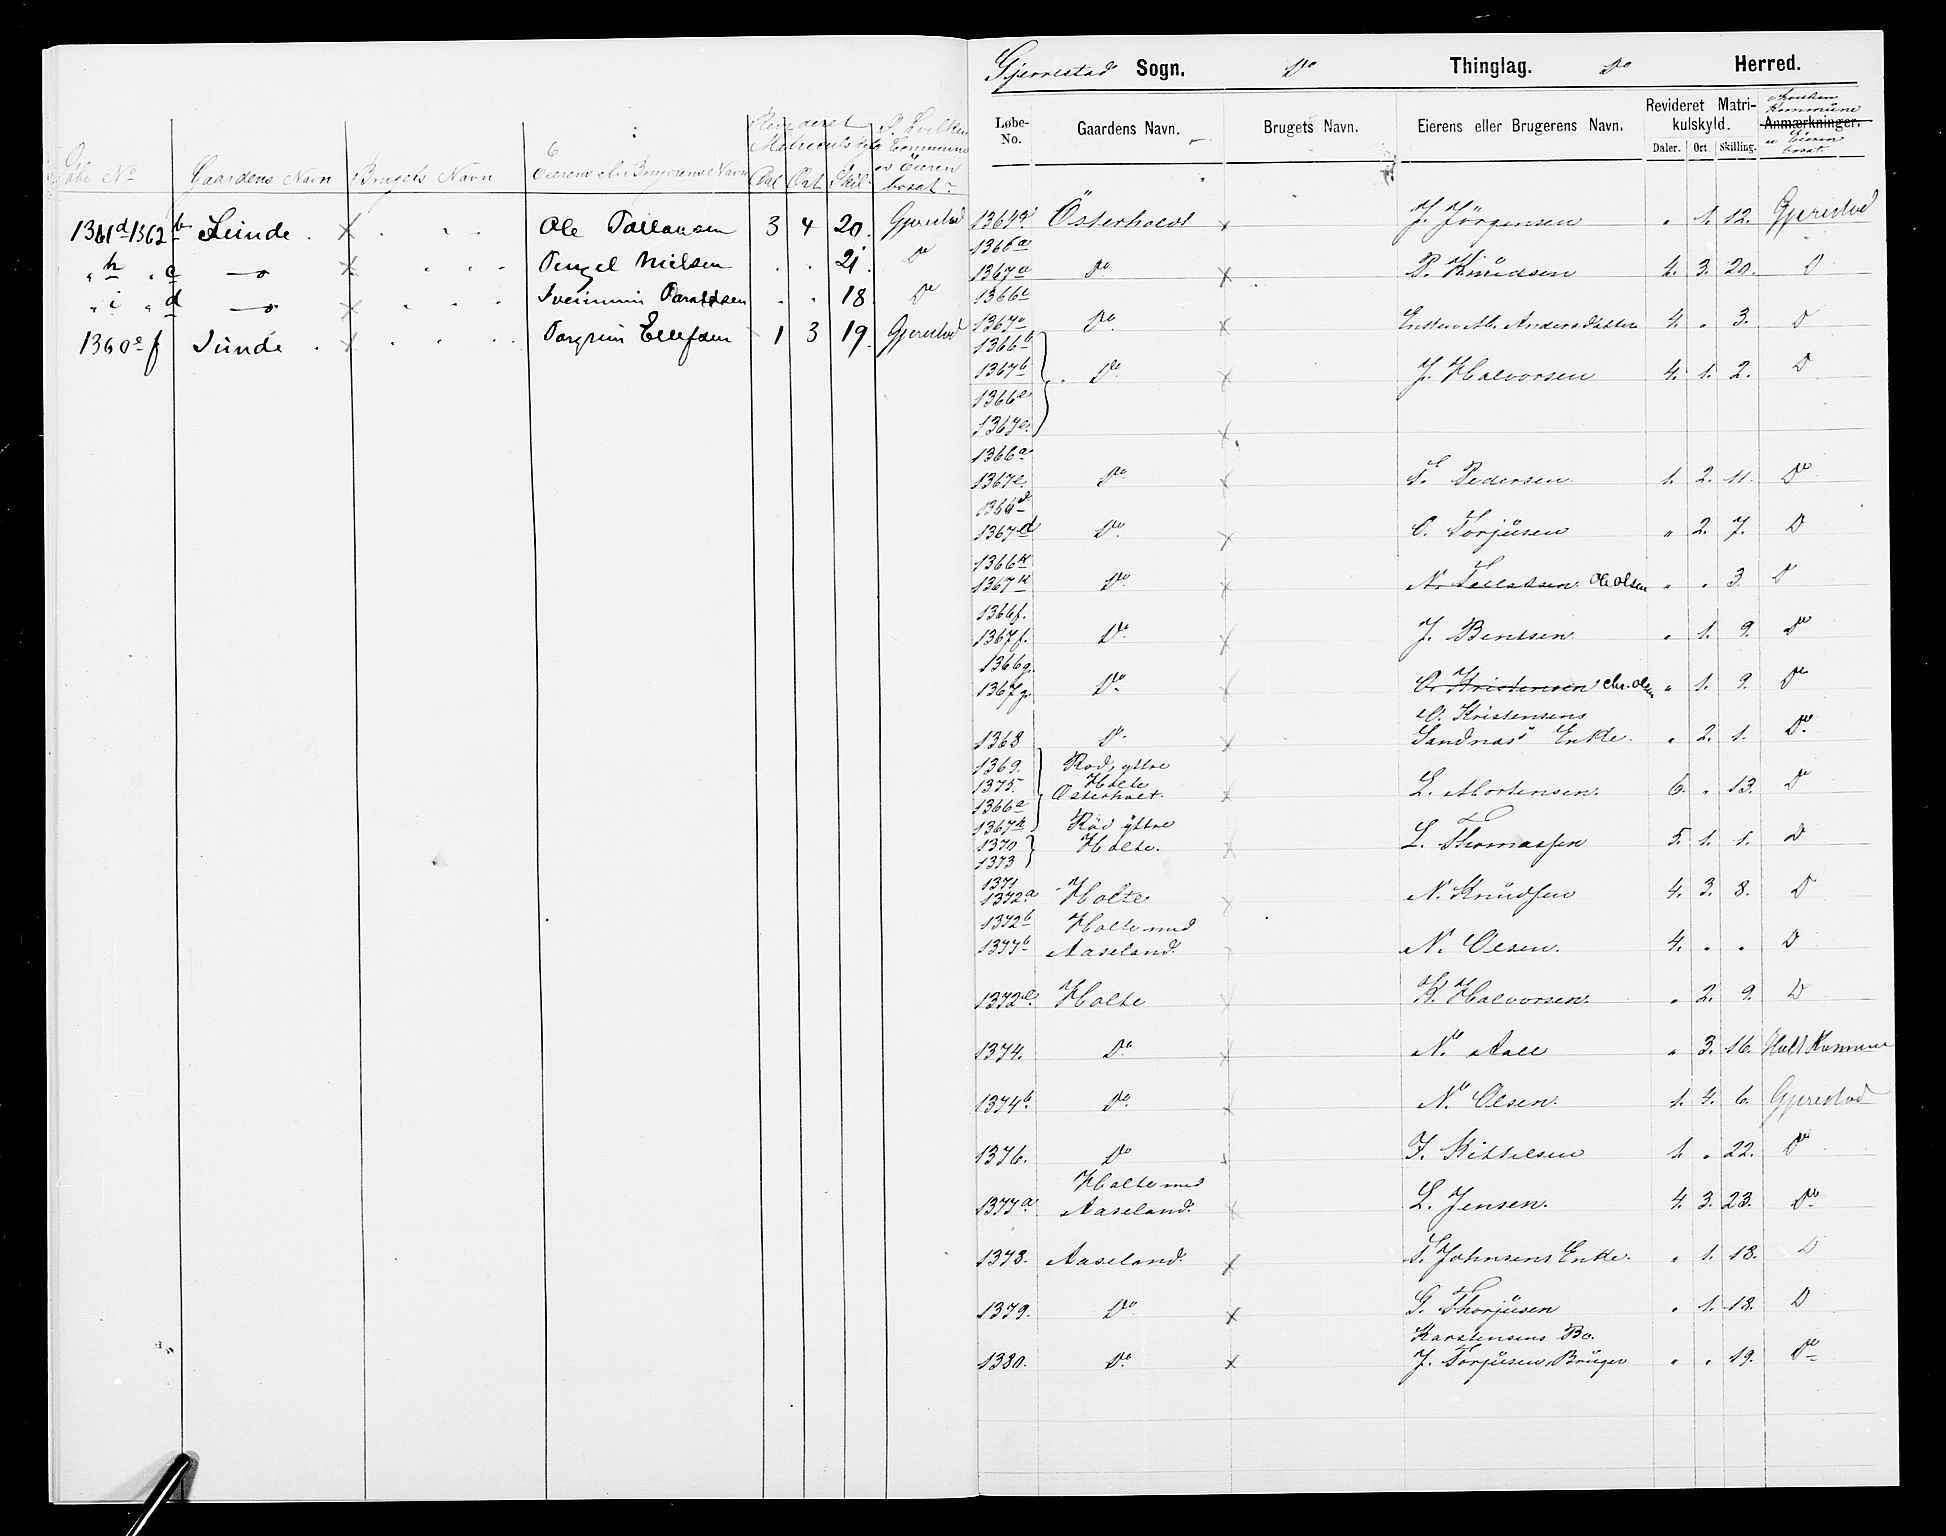 Revideret I hvilken
Matriculskyld Commune
Løbe No Gaardens Navn Brugets Navn Eierens el. Brugerens Navn Dal Ort Skil. er Eieren bosat
1361d 1362b Lunde . × . . . Ole Tallaksen 3 4 20. Gjerestad
" h " c —"— × . . . Tengel Nielsen . . 21. Do
" i " d —"— × . . . Sveinung Taraldsen . . 18 Do
1360e f Sunde . × . . . Torgrim Ellefsen 1 3 19. Gjerestad
Gjerrestad Sogn. Do Thinglag. Do Herred.
Løbe-No. Gaardens Navn. Brugets Navn. Eierens eller Brugerens Navn. Revideret Matrikulskyld. Anmærkninger.
i hvilken Kommune er Eieren bosat.
Daler. Ort Skilling.
1364d Österholdt × J. Jörgensen " 1. 12. Gjerestad
1366a
1367a Do × P. Knudsen 4. 3. 20. D
1366c
1367c Do × Enken M. Andersdatter 4. " 3. D
1366b
1367b Do × J. Halvorsen 4. 1. 2. D
1366e
1367e. ×
1366a
1367e. Do × T. Pedersen 1. 2. 11. Do
1366d
1367d Do × O. Torjüsen " 2. 7. D
1366k
1367k Do × N. Tallaksen. Ole Olsen " " 3. D
1366f.
1367f. Do × J. Bentsen " 1. 9. Do
1366g.
1367g. Do × O. Kristensen Chr. Olsen " 1. 9. Do
O. Kristensens
1368 Do × Sandnäs Enke. " 2. 1. Do
1369. Rød, yttre
1375. Holte
1366a Österholt. × L. Mortensen. 6. " 13. Do
1367h Röd yttre
1370 Holte. × L. Thomassen 5. 1. 1. D
1373
1371
1372a Holte × N. Knüdsen 4. 3. 8. D
1372b Holte med
1377b Aaseland. N. Olsen. 4. " " D
1372c. Holte × K. Halvorsen. " 2. 9. D
1374. Do × N. Aall " 3. 16. Holt Kommune
1374b. Do × N. Olsen. 1. 4. 6. Gjerestad
1376. Do × F. Kittelsen 1. " 22. Do
Holte med
1377a Aaseland. × L. Jensen. 4. 3. 23. Do
1378. Aaseland. × T. Johnsens Enke. " 1. 18. D
1379. Do × G. Thorjüsen " 1. 18. D
Karstensens Bo.
1380. Do × J. Torjüsen, Brüger " " 19. Do